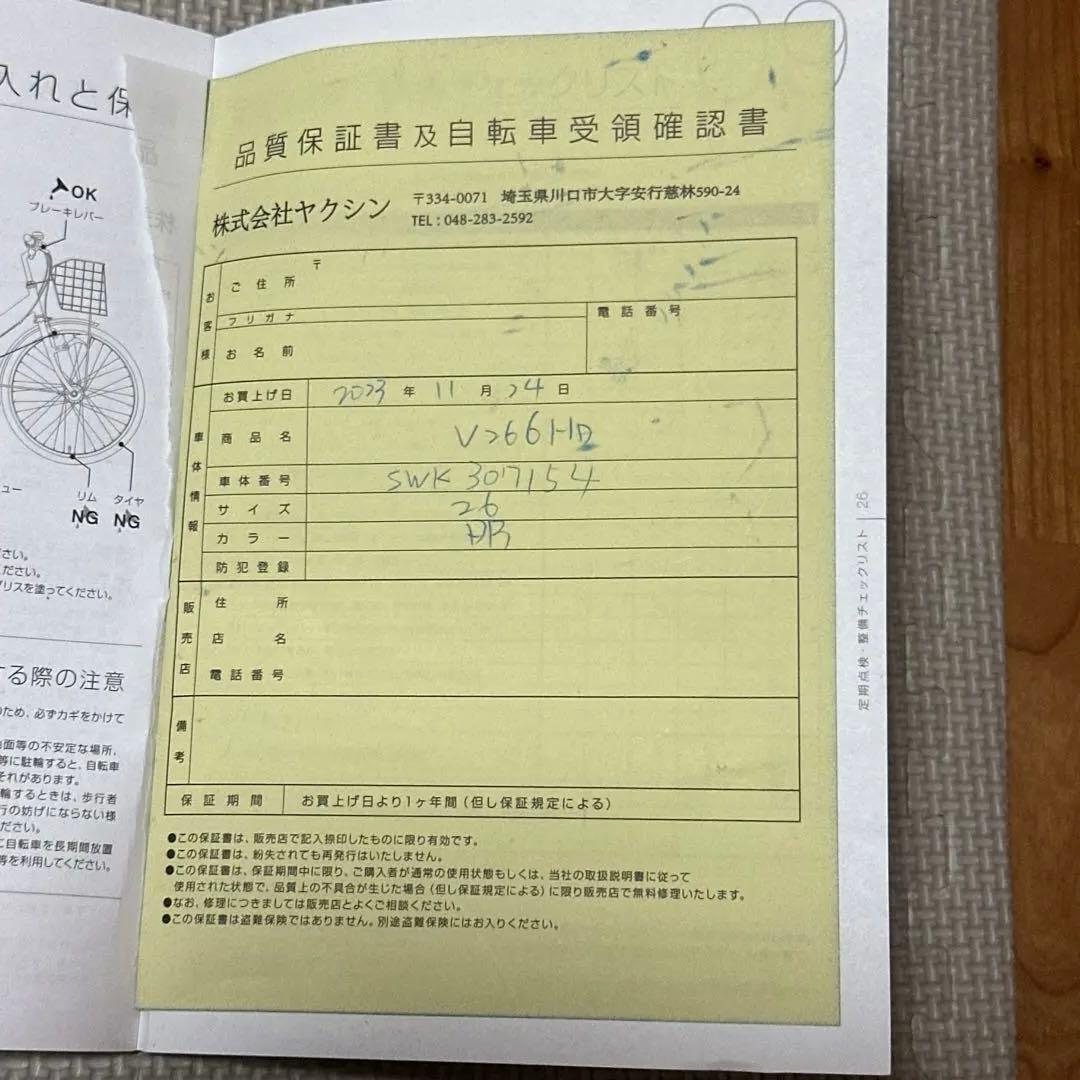 入れと保
OK
ブレーキレバー
リム
タイヤ
NG
NG
さい。
ださい。
グリスを塗ってください。
する際の注意
のため、必ずカギをかけて
面等の不安定な場所、
等に駐輪すると、自転車
それがあります。
輪するときは、歩行者
行の妨げにならない様
ださい。
に自転車を長期間放置
等を利用してください。
品質保証書及自転車受領確認書
株式会社ヤクシン
〒334-0071 埼玉県川口市大字安行慈林590-24
TEL : 048-283-2592
お客様
〒
ご住所
フリガナ
お名前
電話番号
車体情報
お買上げ日 2023 年 11 月 24 日
商品名 V266HD
車体番号 SWK307154
サイズ 26
カラー BR
防犯登録
販売店
住所
店名
電話番号
備考
保証期間 お買上げ日より1ヶ年間(但し保証規定による)
●この保証書は、販売店で記入捺印したものに限り有効です。
●この保証書は、紛失されても再発行はいたしません。
●この保証書は、保証期間中に限り、ご購入者が通常の使用状態もしくは、当社の取扱説明書に従って
使用された状態で、品質上の不具合が生じた場合(但し保証規定による)に限り販売店で無料修理いたします。
●なお、修理につきましては販売店とよくご相談ください。
●この保証書は盗難保険ではありません。別途盗難保険にはお入りください。
定期点検・整備チェックリスト 26